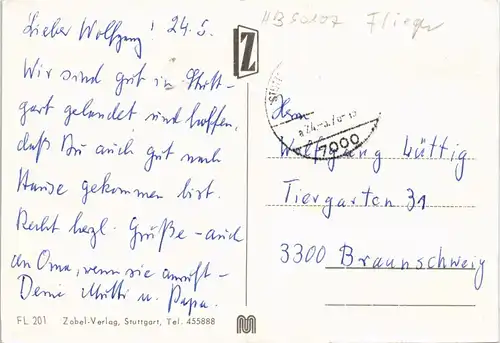 Lieber Wolfgang! 24.5.
Wir sind gut in Stutt-
gart gelandet und hoffen,
daß Du auch gut nach
Hause gekommen bist.
Recht herzl. Grüße – auch
an Oma, wenn sie anruft –
Deine Mutti u. Papa.
FL 201 Zobel-Verlag, Stuttgart, Tel. 455888
Z
HBS0107 Flieger
7000
Herrn
Wolfgang Lüttig
Tiergarten 31
3300 Braunschweig